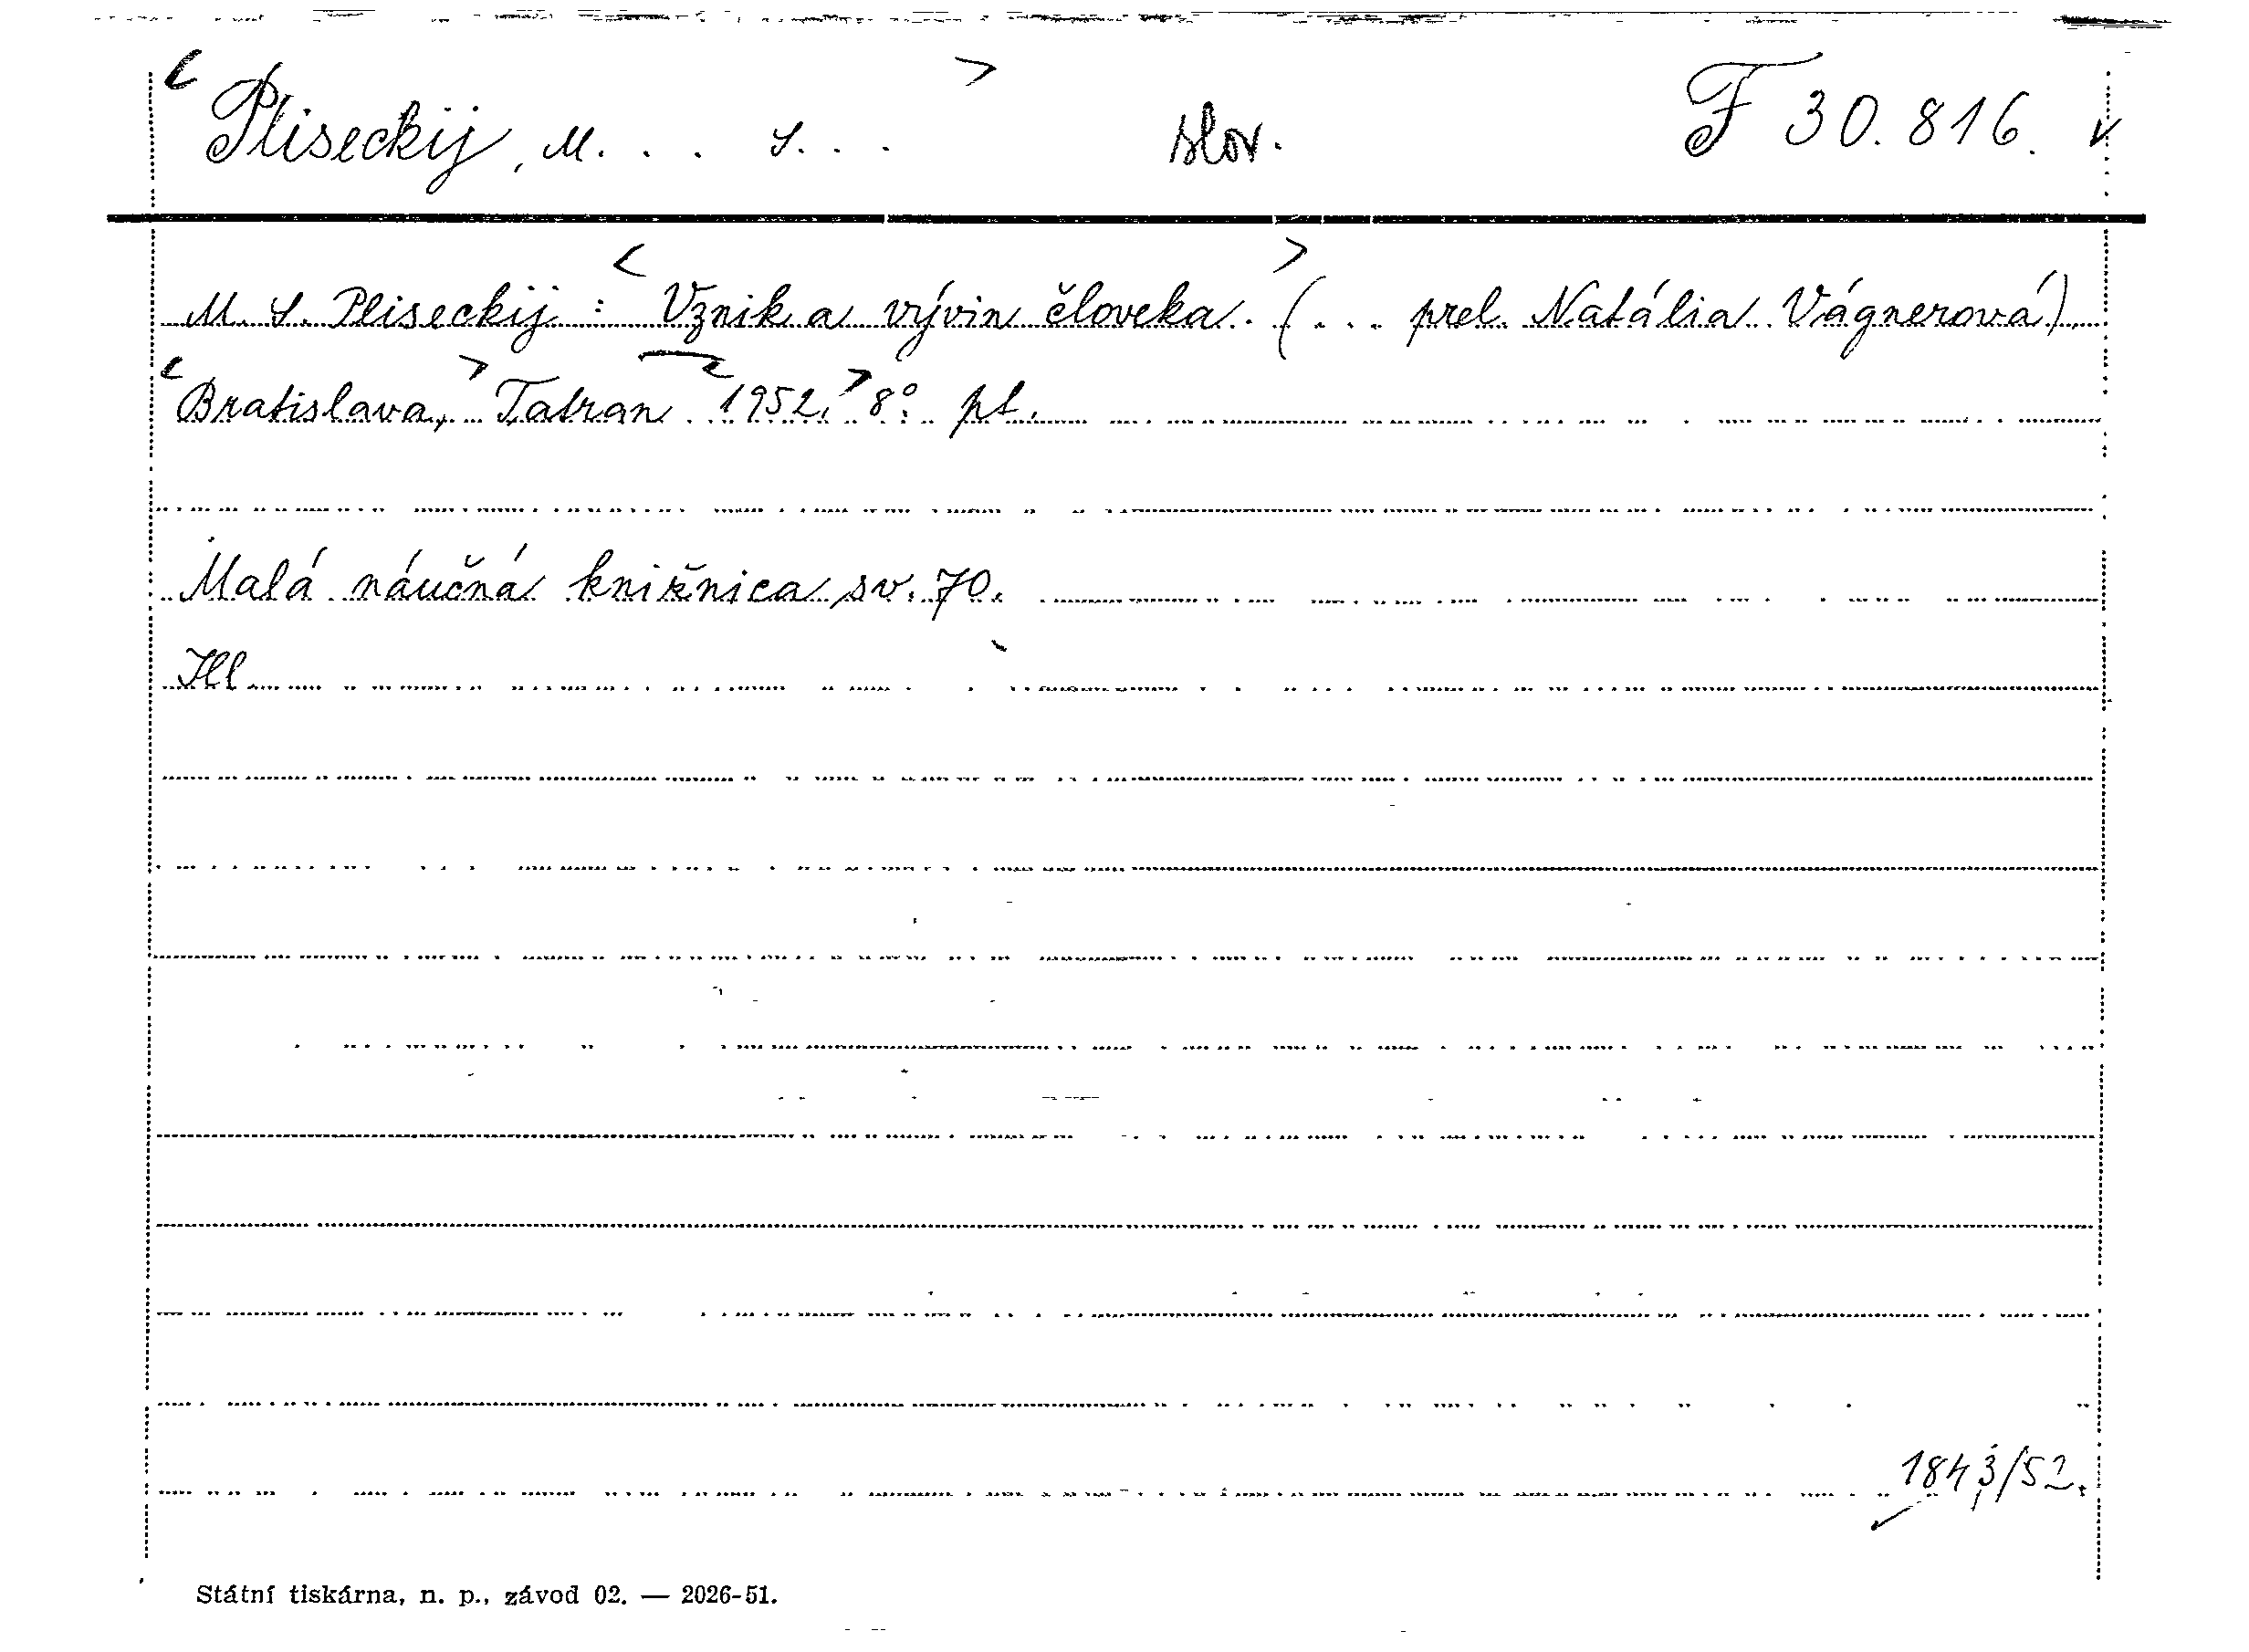 Pliseckij, M. . . S. . . slov. F 30.816.
M. S. Pliseckij : Vznik a vývin človeka. (... prel. Natália Vágnerová).
Bratislava, Tatran 1952. 8° pt.
Malá náučná knižnica sv. 70.
Ill
1843/52.
Státní tiskárna, n. p., závod 02. — 2026-51.